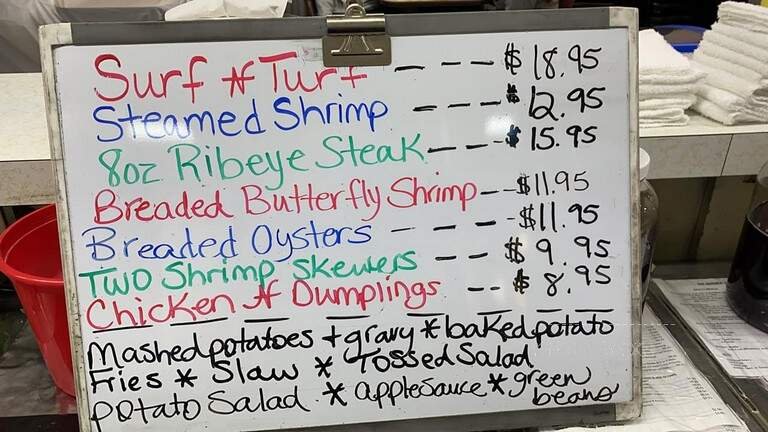 Surf N Turf --- $18.95
Steamed Shrimp --- $12.95
8oz Ribeye Steak --- $15.95
Breaded Butterfly Shrimp -- $11.95
Breaded Oysters --- -$11.95
Two Shrimp Skewers -- $9.95
Chicken N Dumplings -- $8.95
Mashed potatoes + gravy * baked potato
Fries * Slaw * Tossed Salad
potato Salad * applesauce * green beans